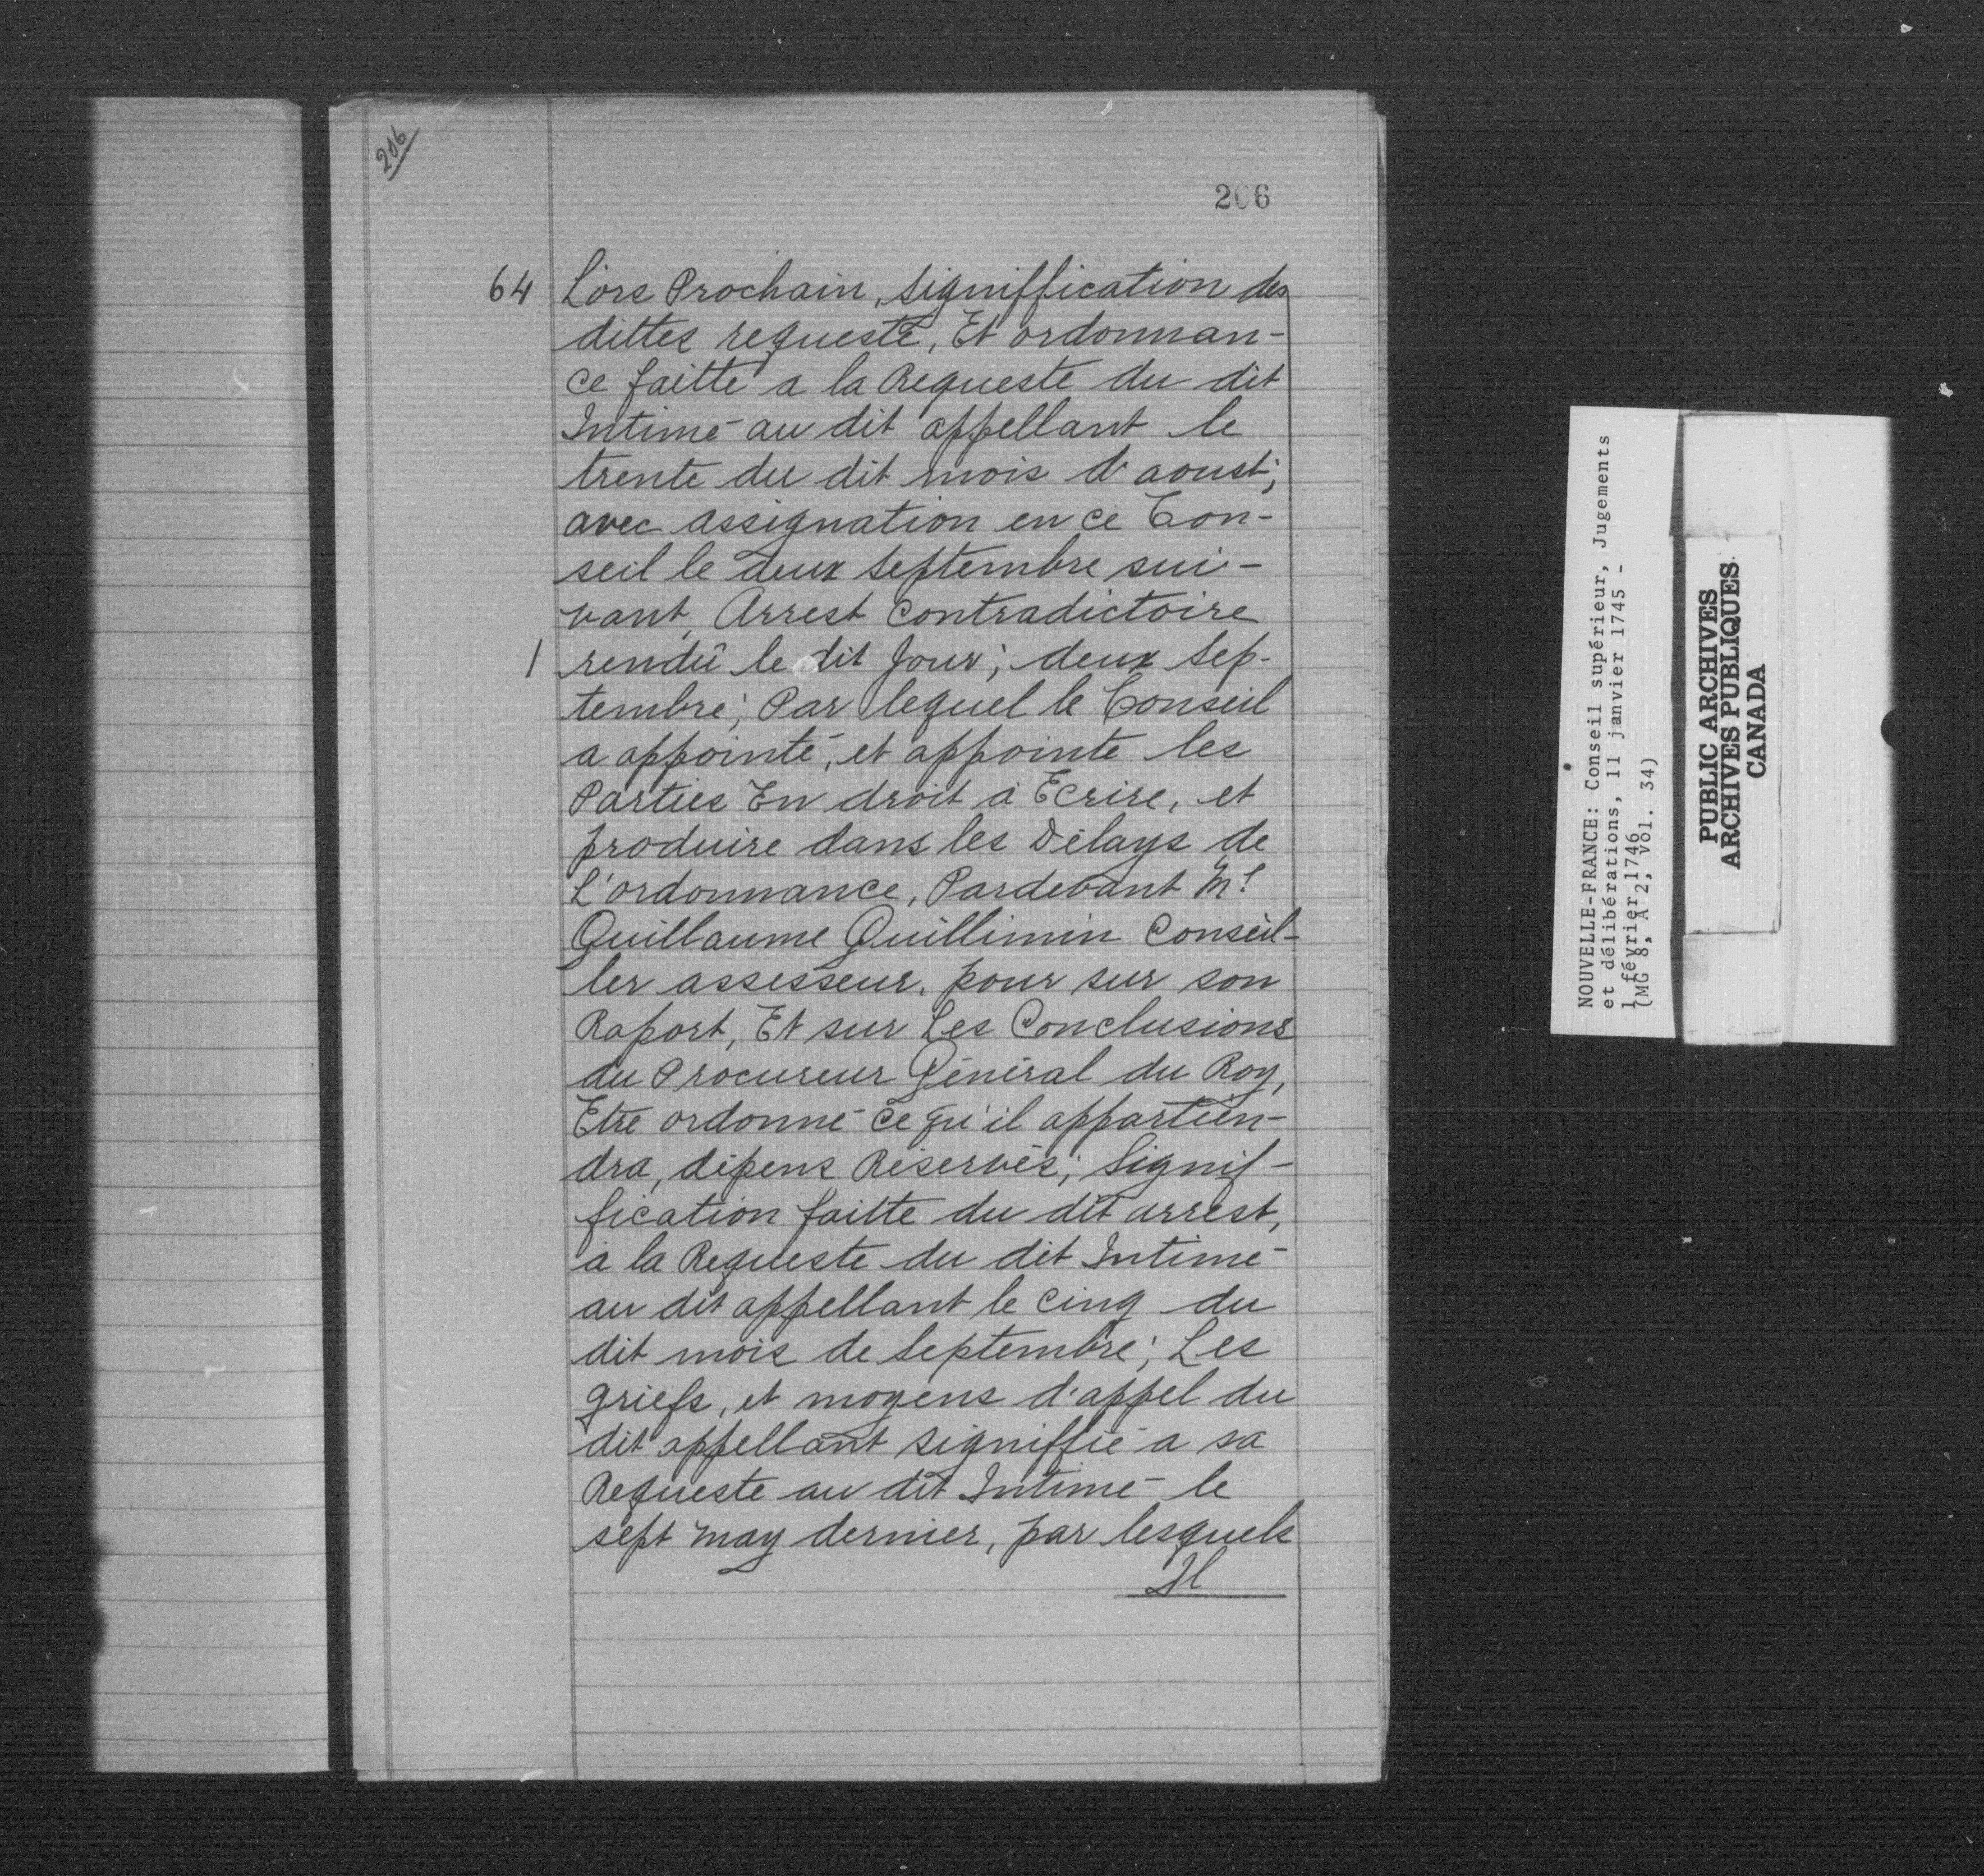 206
206
64 Lors Prochain, signiffication des
dittes requeste, Et ordonnan-
ce faitte a la Requeste du dit
Intimé au dit appellant le
trente du dit mois d'aoust;
avec assignation en ce Con-
seil le deux septembre sui-
vant, Arrest contradictoire
/ rendû le dit Jour; deux Sep-
tembre; Par lequel le Conseil
a appointé, et appointe les
Parties En droit à Ecrire, et
produire dans les Délays de
L'ordonnance, Pardevant Mr
Guillaume Guillimin Conseil-
ler assesseur, pour sur son
Raport, Et sur Les Conclusions
du Procureur Général du Roy,
Etre ordonné ce qu'il appartien-
dra, dépens Réservés; Signif-
fication faitte du dit arrest,
à la Requeste du dit Intimé
au dit appellant le cinq du
dit mois de Septembre; Les
griefs, et moyens d'appel du
dit appellant signiffié a sa
Requeste au dit Intimé le
sept may dernier, par lesquels
Il
NOUVELLE-FRANCE: Conseil supérieur, Jugements
et délibérations, 11 janvier 1745 -
1 février 1746
(MG 8, A 2, vol. 34)
PUBLIC ARCHIVES
ARCHIVES PUBLIQUES
CANADA